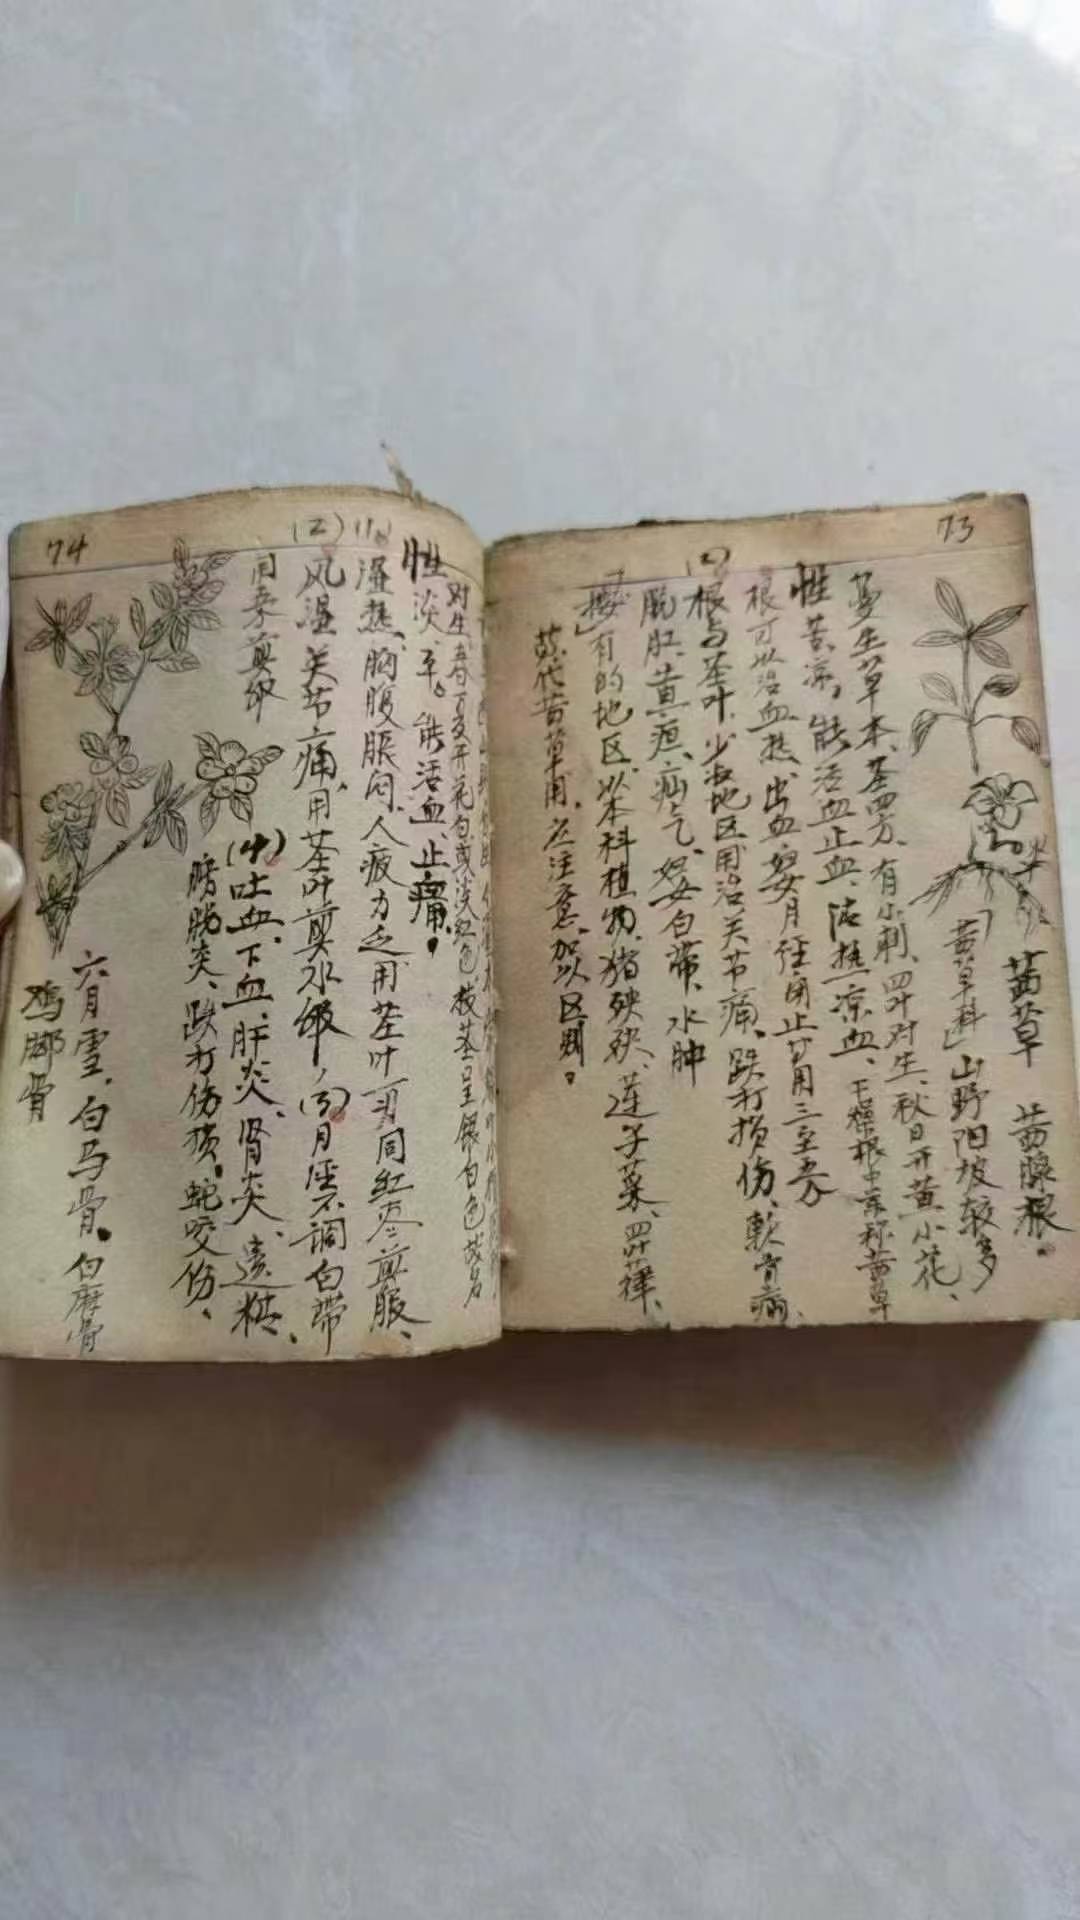 73
茜草 茜草根。
「茜草科」山野阳坡较多
蔓生草本、茎四方、有小刺、四叶对生、秋日开黄小花、
性苦凉。能活血止血、清热凉血、干燥根中药称茜草
根可以治血热、出血、月经闭止、用三至
根与茎叶、少数地区用治关节痛、跌打损伤、软骨病、
脱肛、黄疸、疝气、妇女白带、水肿
有的地区、以本科植物、猪殃殃、莲子菜、四叶葎、
代茜草用。应注意、加以区别。
74
六月雪、白马骨。白麻骨
鸡脚骨
对生、春夏开花白或淡红色 枝茎呈银白色故名
性淡、平。能活血、止痛。
(1)湿热、胸腹胀闷、人疲力乏用茎叶 同红枣煎服、
(2)风湿关节痛、用茎叶煎水 、(3)月经不调白带
用 煎
(4)吐血、下血、肝炎、肾炎、遗精、
膀胱炎、跌打伤损。蛇咬伤、